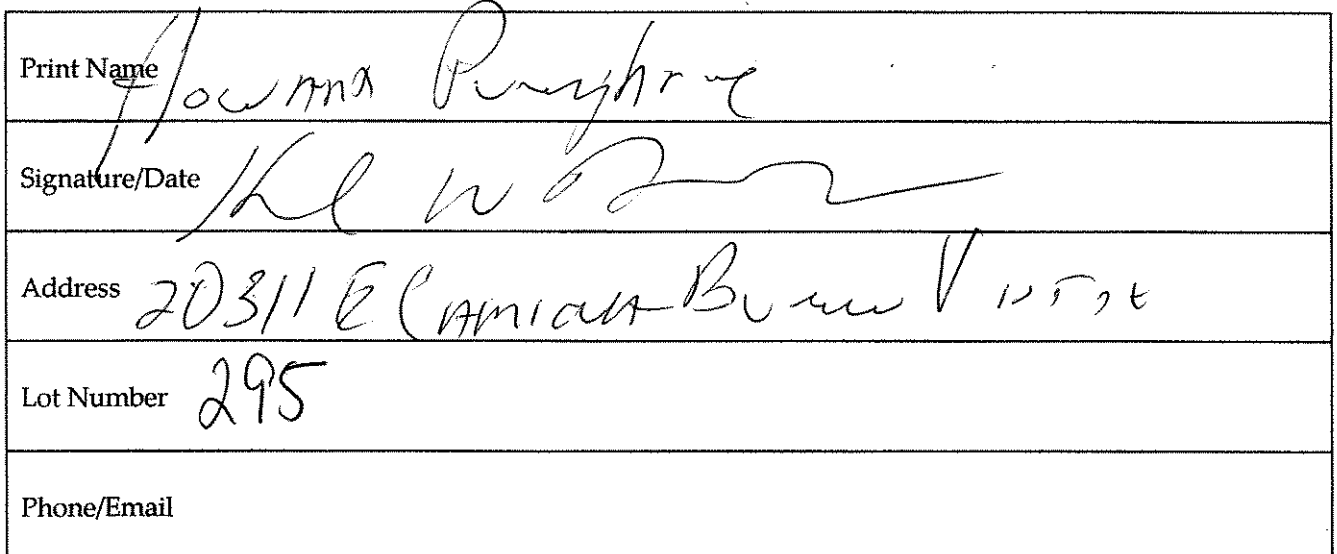 Print Name Howard
Signature/Date
Address 20311 E Camina Buena Vista
Lot Number 295
Phone/Email